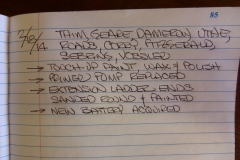 85
7/6/14 THIM, SEARE, DAMERON, UTNE,
ROADS, COREY, FITZGERALD,
SEBRING, VOSSLER
→ TOUCH UP PAINT, WAX & POLISH
→ POWER PUMP REPLACED
→ EXTENSION LADDER ENDS
SANDED ROUND & PAINTED
→ NEW BATTERY ACQUIRED